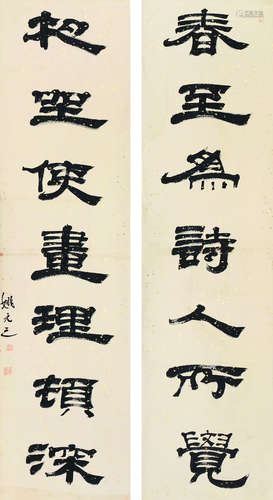 春至為詩人所覺
夙望使畫理頓深
姚元之